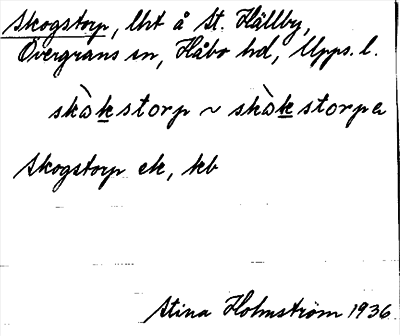 Skogstorp, lht å St. Hällby,
Övergrans sn, Håbo hd, Upps. l.
skàkstorp ~ skàkstorpa
Skogstorp ek, kb
Stina Holmström 1936